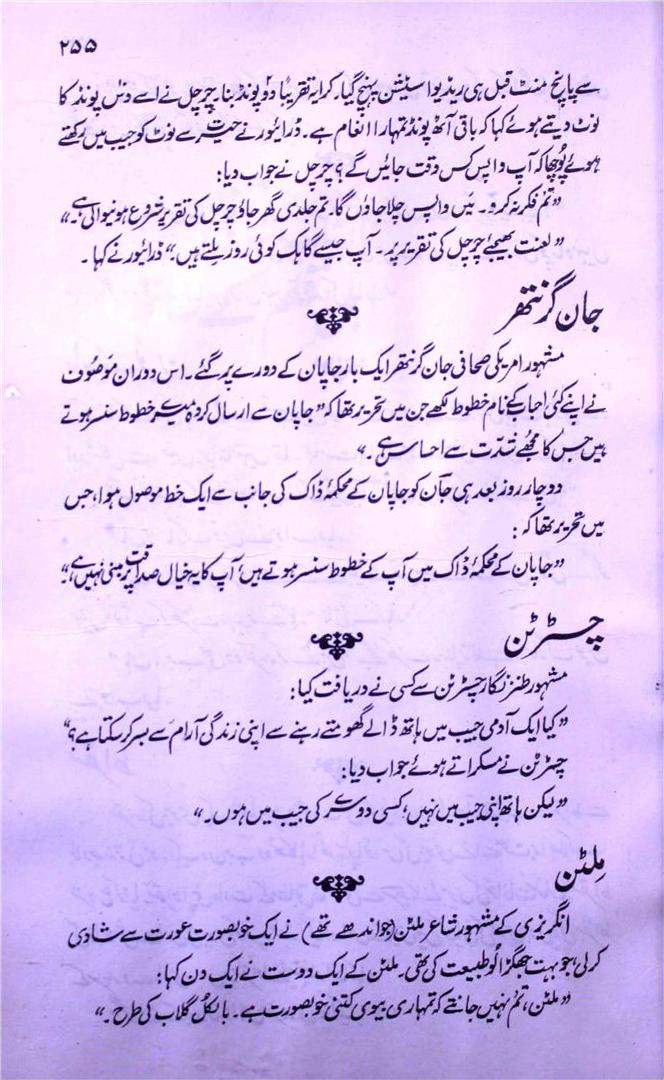 ۲۵۵
سے پانچ منٹ قبل ہی ریڈیو اسٹیشن پہنچ گیا۔ کرایہ تقریباً دو پونڈ بنا۔ چرچل نے اسے دس پونڈ کا
نوٹ دیتے ہوئے کہا کہ باقی آٹھ پونڈ تمہارا انعام ہے۔ ڈرائیور نے حیرت سے نوٹ کو جیب میں رکھتے
ہوئے پوچھا کہ آپ واپس کس وقت جائیں گے؟ چرچل نے جواب دیا:
”تم فکر نہ کرو۔ میں واپس چلا جاؤں گا۔ تم جلدی گھر جاؤ چرچل کی تقریر شروع ہونیوالی ہے۔“
”لعنت بھیجئے چرچل کی تقریر پر۔ آپ جیسے گاہک کوئی روز ملتے ہیں“ ڈرائیور نے کہا۔
جان گرنتھر
مشہور امریکی صحافی جان گرنتھر ایک بار جاپان کے دورے پر گئے۔ اس دوران موصوف
نے اپنے کئی احباب کے نام خطوط لکھے جن میں تحریر تھا کہ ”جاپان سے ارسال کردہ میرے خطوط سنسر ہوتے
ہیں جس کا مجھے شدت سے احساس ہے۔“
دو چار روز بعد ہی جان کو جاپان کے محکمۂ ڈاک کی جانب سے ایک خط موصول ہوا، جس
میں تحریر تھا کہ:
”جاپان کے محکمۂ ڈاک میں آپ کے خطوط سنسر ہوتے ہیں، آپ کا یہ خیال صداقت پر مبنی نہیں ہے۔“
چسٹرٹن
مشہور طنز نگار چسٹرٹن سے کسی نے دریافت کیا:
”کیا ایک آدمی جیب میں ہاتھ ڈالے گھومتے رہنے سے اپنی زندگی آرام سے بسر کر سکتا ہے؟“
چسٹرٹن نے مسکراتے ہوئے جواب دیا:
”لیکن ہاتھ اپنی جیب میں نہیں، کسی دوسرے کی جیب میں ہوں۔“
ملٹن
انگریزی کے مشہور شاعر ملٹن (جو اندھے تھے) نے ایک خوبصورت عورت سے شادی
کر لی، جو بہت جھگڑالو طبیعت کی تھی۔ ملٹن کے ایک دوست نے ایک دن کہا:
”ملٹن، تم نہیں جانتے کہ تمہاری بیوی کتنی خوبصورت ہے۔ بالکل گلاب کی طرح۔“